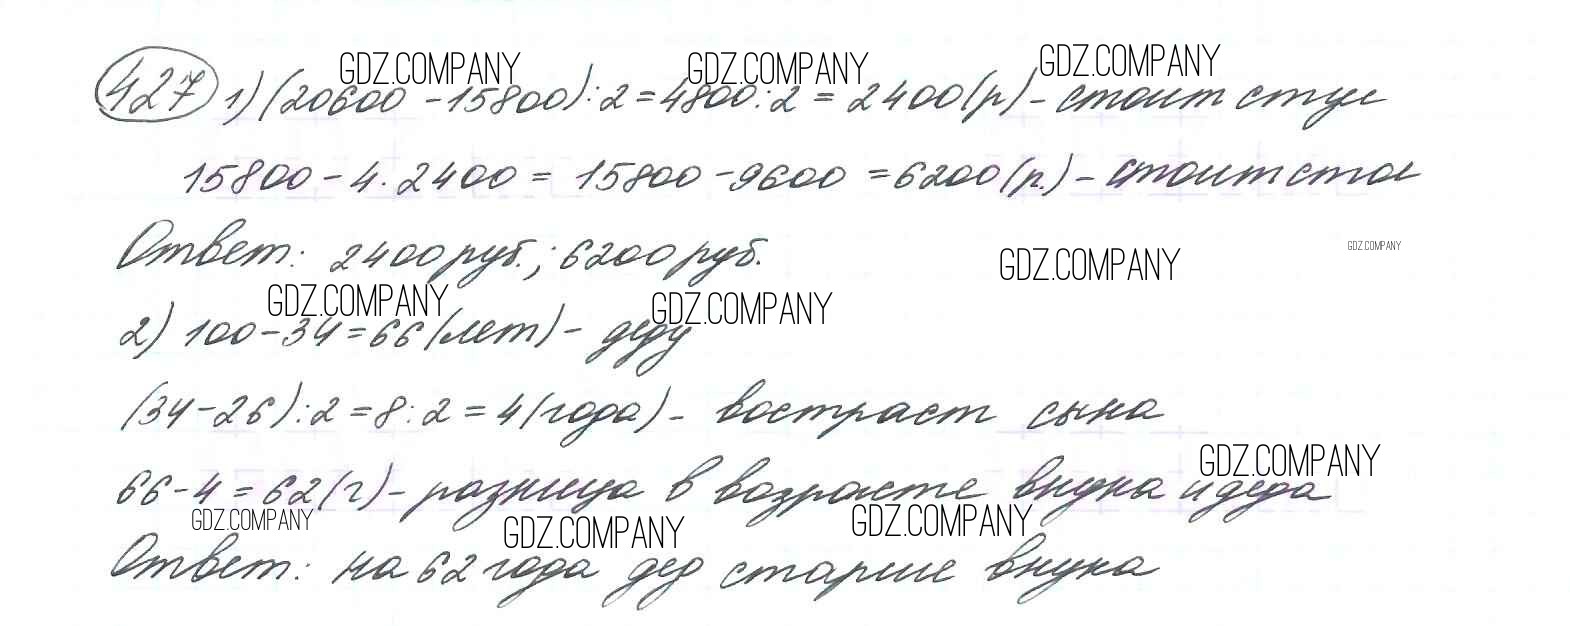 427 1) (20600 - 15800) : 2 = 4800 : 2 = 2400 (р) - стоит стул
15800 - 4 · 2400 = 15800 - 9600 = 6200 (р.) - стоит стол
Ответ: 2400 руб.; 6200 руб.
2) 100 - 34 = 66 (лет) - деду
(34 - 26) : 2 = 8 : 2 = 4 (года) - востраст сына
66 - 4 = 62 (г) - разница в возрасте внука и деда
Ответ: на 62 года дед старше внука
GDZ.COMPANY
GDZ.COMPANY
GDZ.COMPANY
GDZ.COMPANY
GDZ.COMPANY
GDZ.COMPANY
GDZ.COMPANY
GDZ.COMPANY
GDZ.COMPANY
GDZ.COMPANY
GDZ.COMPANY